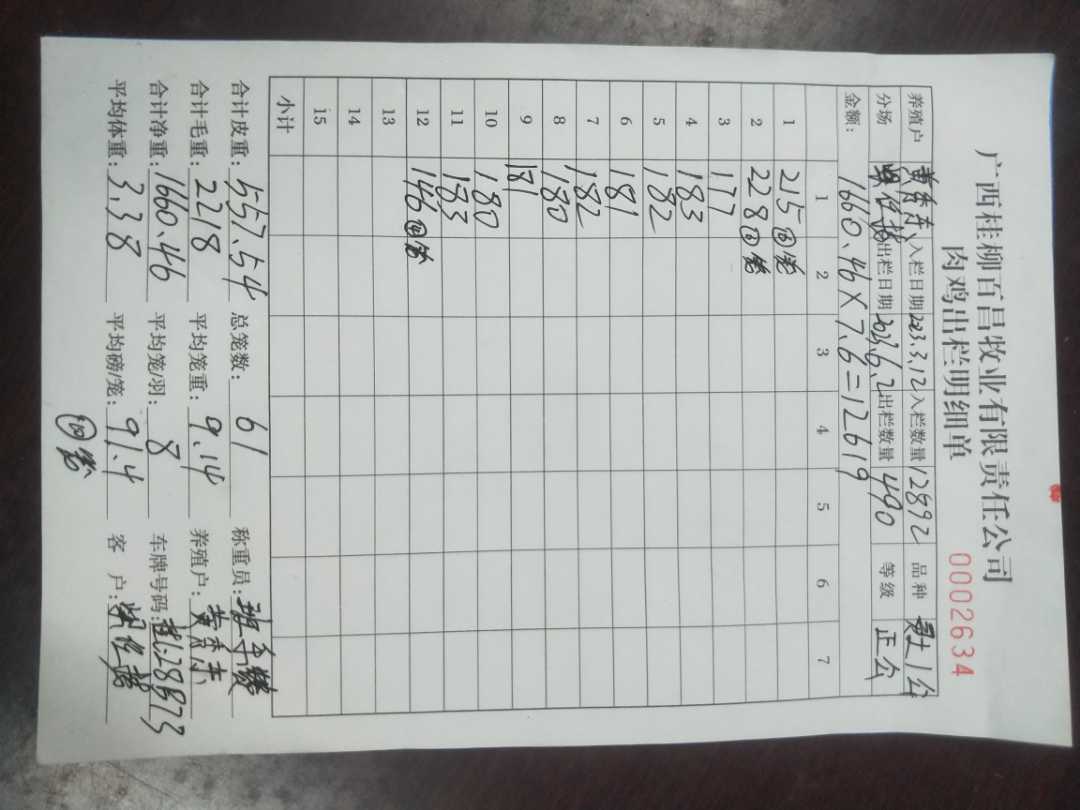 广西桂柳百昌牧业有限责任公司
肉鸡出栏明细单
0002634
养殖户 黄秀东 入栏日期 2023.3.12 入栏数量 12892 品种 土1公
分场 出栏日期 2023.6.2 出栏数量 490 等级 正公
金额: 1660.46×7.6=12619
1 2 3 4 5 6 7
1 215 ⑥笼
2 228 ⑥笼
3 177
4 183
5 182
6 181
7 182
8 180
9 181
10 180
11 183
12 146 ④笼
13
14
15
小计
合计皮重: 557.54 总笼数: 61 称重员: 班
合计毛重: 2218 平均笼重: 9.14 养殖户: 黄秀东
合计净重: 1660.46 平均笼/羽: 8 车牌号码: 桂L28B73
平均体重: 3.38 平均磅/笼: 91.4 客 户: